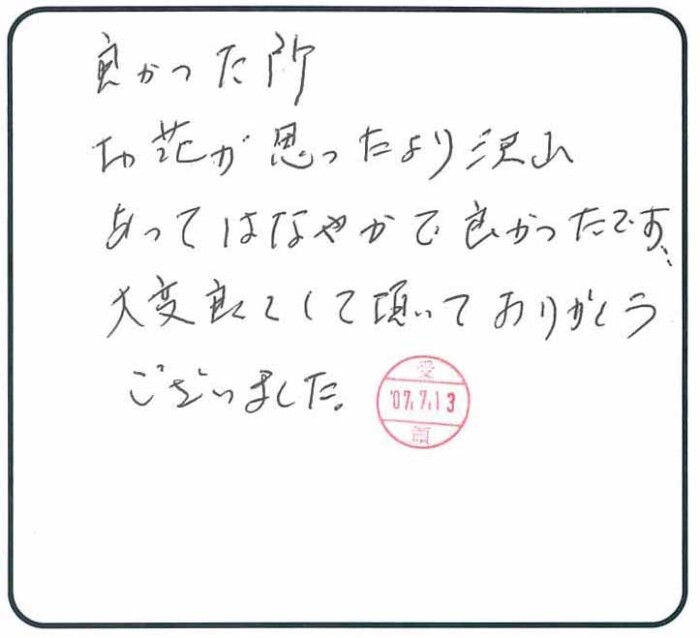 良かった所
切花が思ったより沢山
あってはなやかで良かったです、
大変良くして頂いてありがとう
ございました。
受
'07.7.13